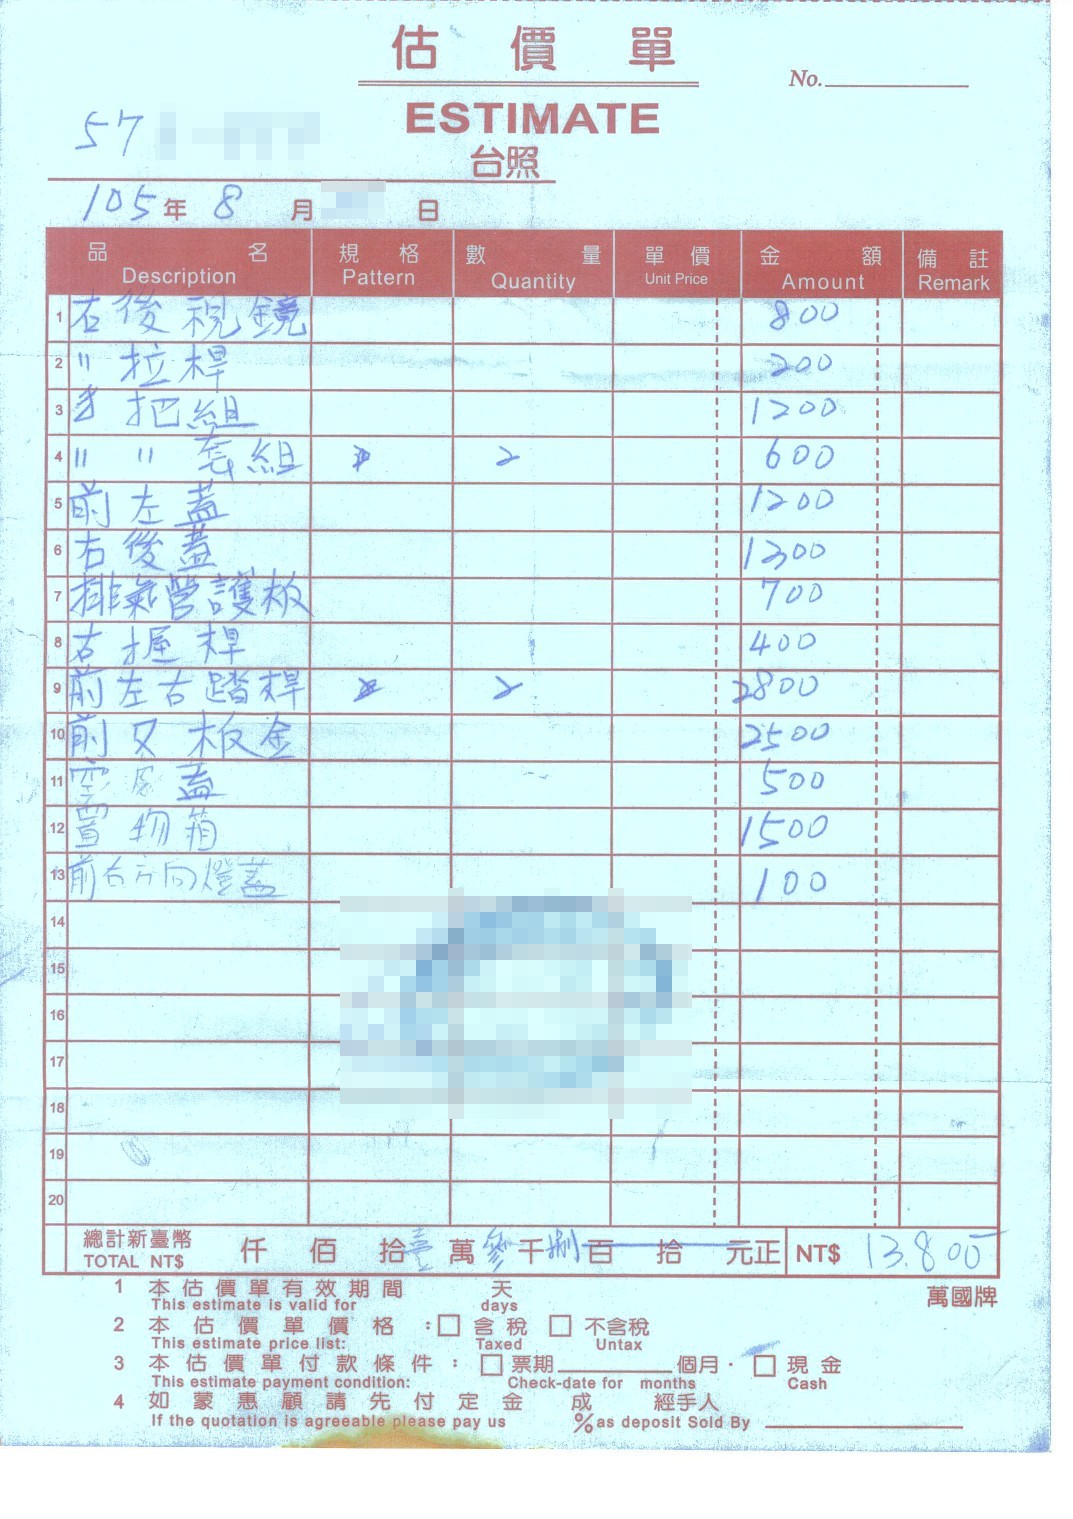 估價單
No.
ESTIMATE
57
台照
105年8月 日
品名 規格 數量 單價 金額 備註
Description Pattern Quantity Unit Price Amount Remark
1 右後視鏡 800
2 〃 拉桿 200
3 手把組 1200
4 〃 〃 套組 2 600
5 前左蓋 1200
6 右後蓋 1300
7 排氣管護板 700
8 右握桿 400
9 前左右踏桿 2 2800
10 前叉板金 2500
11 空 蓋 500
12 置物箱 1500
13 前右方向燈蓋 100
14
15
16
17
18
19
20
總計新臺幣 仟 佰 拾壹萬 千捌百 拾 元正 NT$ 13.800
TOTAL NT$
萬國牌
1 本估價單有效期間 天
This estimate is valid for days
2 本估價單價格:□含稅 □不含稅
This estimate price list: Taxed Untax
3 本估價單付款條件:□票期 個月·□現金
This estimate payment condition: Check-date for months Cash
4 如蒙惠顧請先付定金 成 經手人
If the quotation is agreeable please pay us %as deposit Sold By